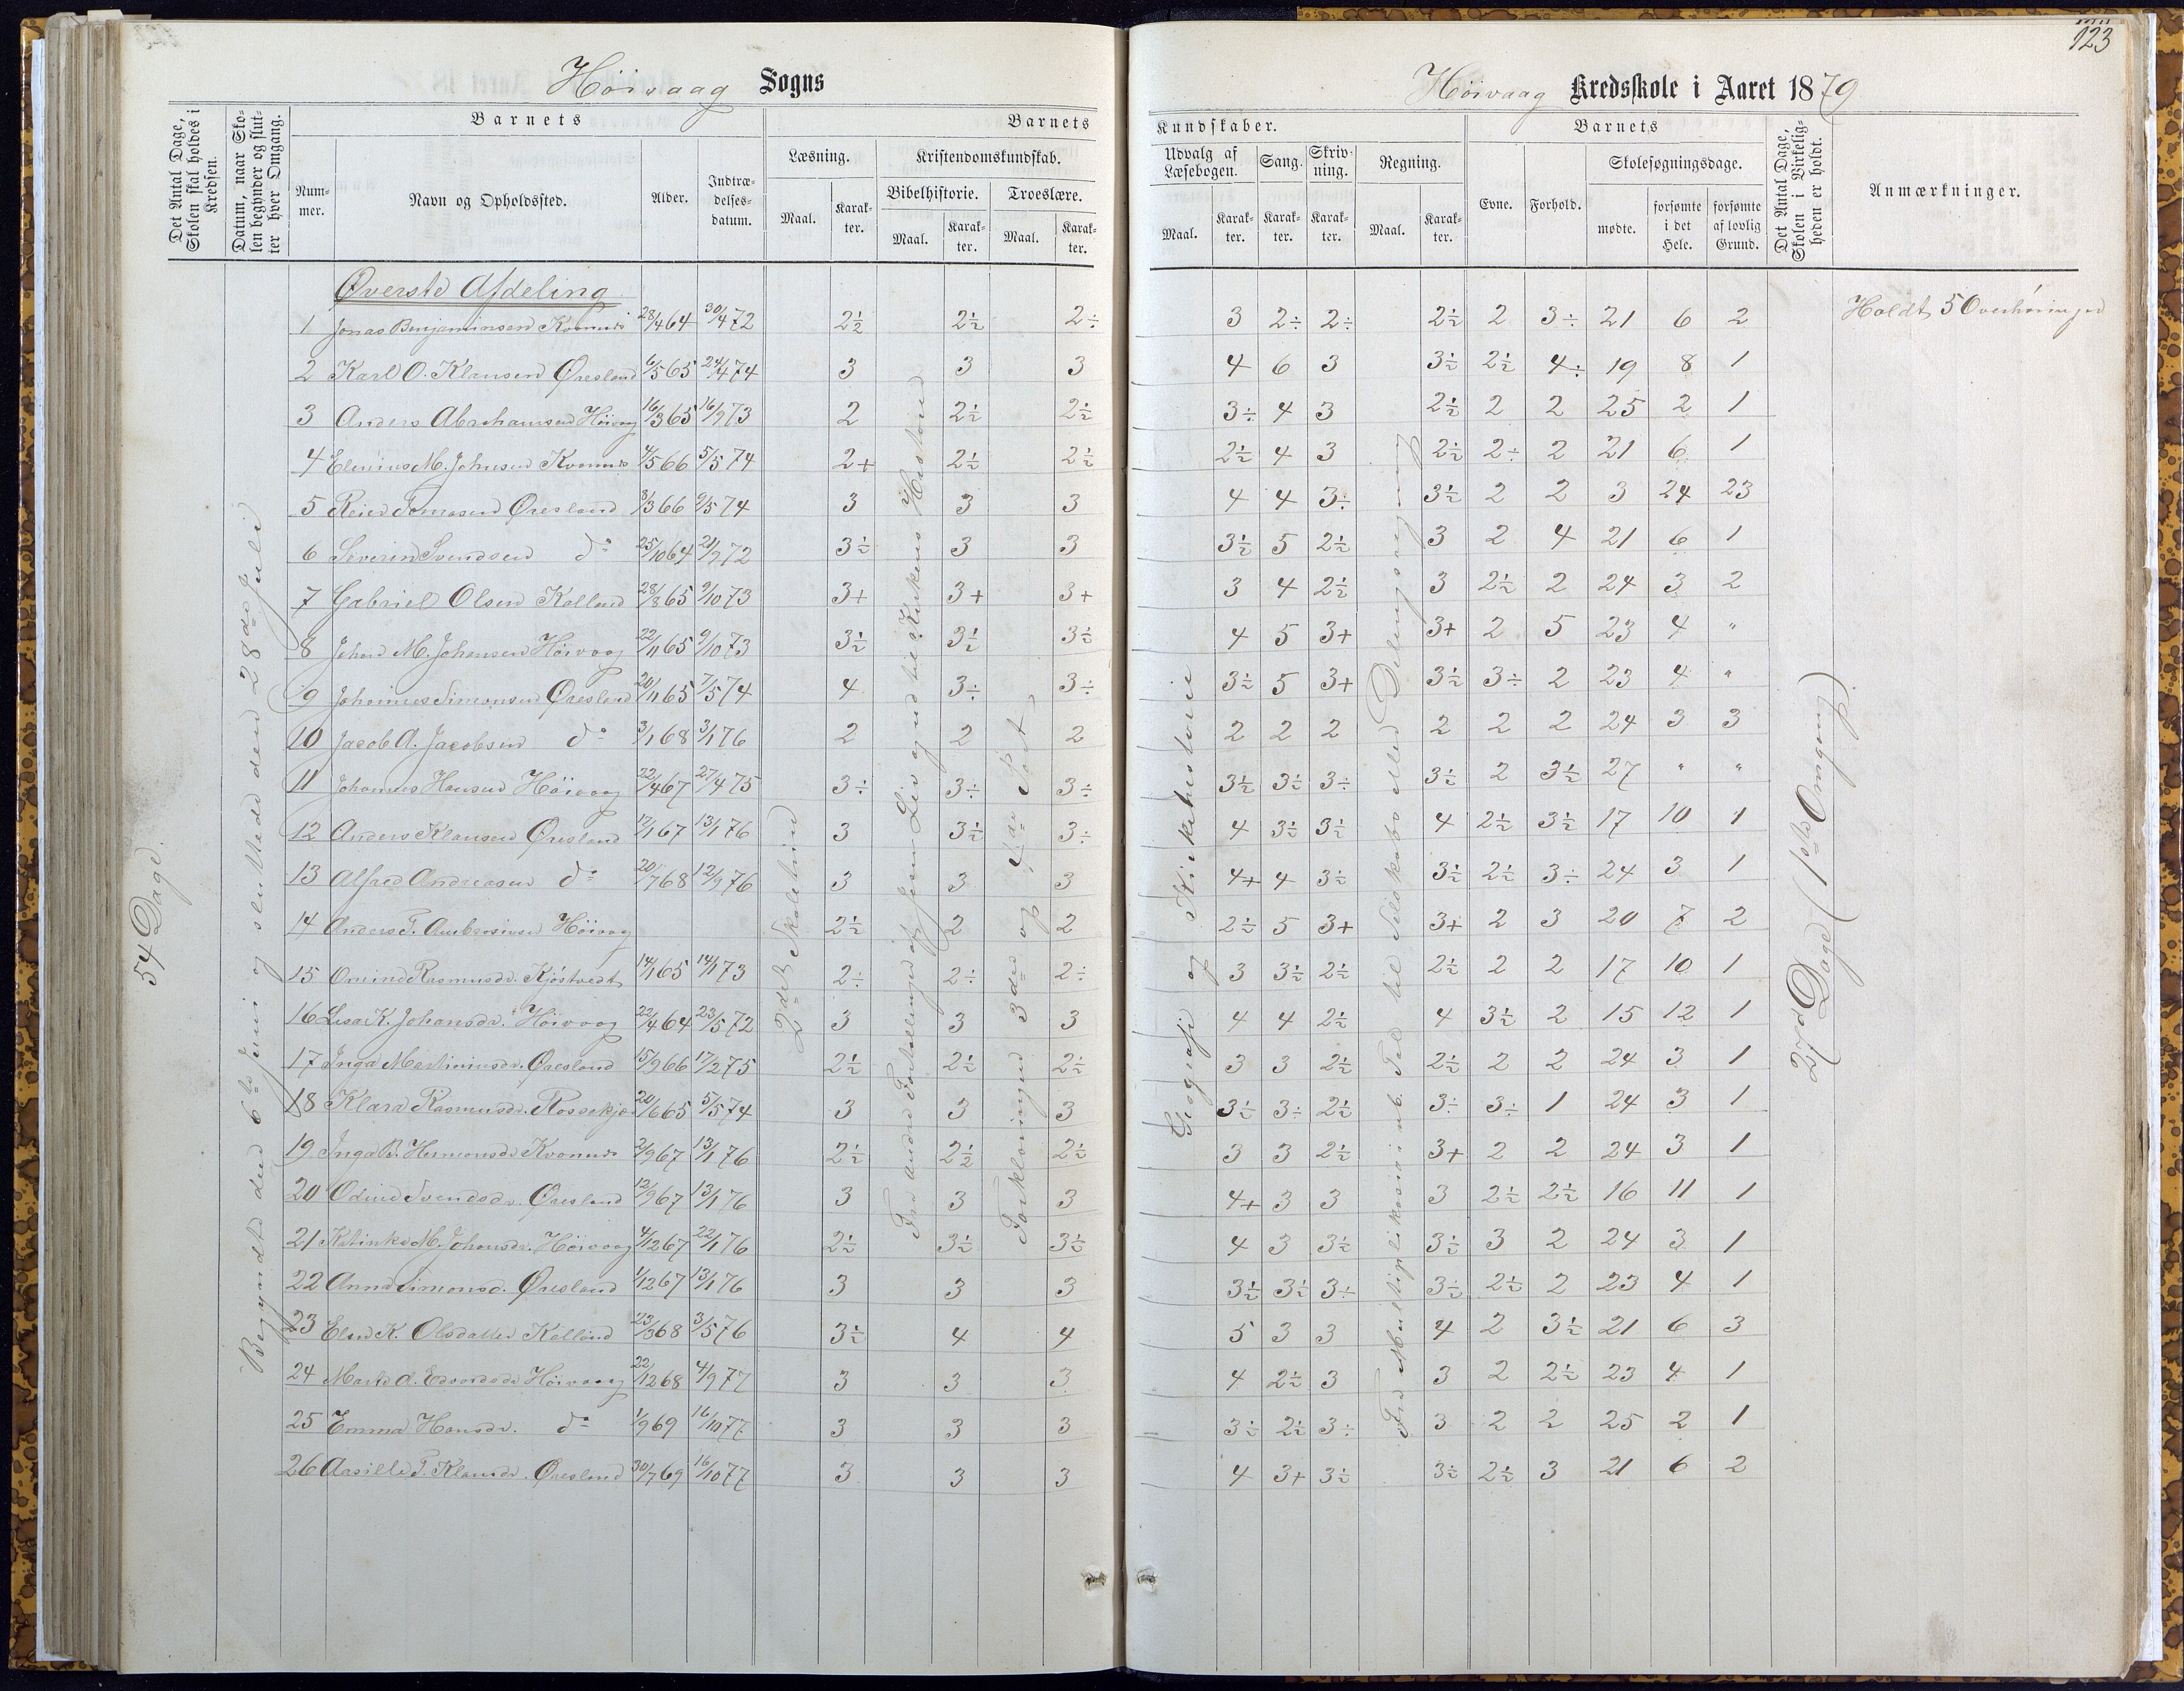 123
Höivaag Sogns
Höivaag Kredsskole i Aaret 1879
Det Antal Dage, Skolen skal holdes i Kredsen.
Datum, naar Skolen begynder og slutter hver Omgang.
Barnets
Nummer.
Navn og Opholdssted.
Alder.
Indtrædelsesdatum.
Barnets
Læsning.
Maal.
Karakter.
Kristendomskundskab.
Bibelhistorie.
Maal.
Karakter.
Troeslære.
Maal.
Karakter.
Kundskaber.
Udvalg af Læsebogen.
Maal.
Karakter.
Sang.
Karakter.
Skrivning.
Karakter.
Regning.
Maal.
Karakter.
Barnets
Evne.
Forhold.
Skolesøgningsdage.
mødte.
forsømte i det Hele.
forsømte af lovlig Grund.
Det Antal Dage, Skolen i Virkeligheden er holdt.
Anmærkninger.
54 Dage.
Begyndte den 6te Juni og sluttede den 28de Juli
2det Skoletrin
Fra andre Fortællinger af Jesu Liv og ud til Kirkens Historie
Forklaringen 3die og 4de Part
Geografi og Kirkehistorie
Fra Multiplikasion ub. Tal til Selskabs eller Delingsregning
27 Dage (1ste Omgang)
Øverste Afdeling
1 Jonas Benjaminsen Kvannes 28/4 64 30/4 72 2½ 2½ 2÷ 3 2÷ 2÷ 2½ 2 3÷ 21 6 2 Holdt 5 Overhøringer
2 Karl O. Klausen Øresland 6/5 65 24/4 74 3 3 3 4 6 3 3½ 2½ 4÷ 19 8 1
3 Anders Abrahamsen Höivaag 16/3 65 16/9 73 2 2½ 2½ 3÷ 4 3 2½ 2 2 25 2 1
4 Elenius M. Johnsen Kvannes 4/5 66 5/5 74 2+ 2½ 2½ 2½ 4 3 2½ 2÷ 2 21 6 1
5 Reier Tomasen Øresland 8/3 66 9/5 74 3 3 3 4 4 3÷ 3½ 2 2 3 24 23
6 Severin Svendsen do 25/10 64 21/9 72 3½ 3 3 3½ 5 2½ 3 2 4 21 6 1
7 Gabriel Olsen Kalland 28/8 65 9/10 73 3+ 3+ 3+ 3 4 2½ 3 2½ 2 24 3 2
8 Johan M. Johansen Höivaag 22/11 65 9/10 73 3½ 3½ 3½ 4 5 3+ 3+ 2 5 23 4 "
9 Johannes Simonsen Øresland 20/11 65 7/5 74 4 3÷ 3÷ 3½ 5 3+ 3½ 3÷ 2 23 4 "
10 Jacob A. Jacobsen do 3/1 68 3/1 76 2 2 2 2 2 2 2 2 2 24 3 3
11 Johannes Hansen Höivaag 22/4 67 27/4 75 3÷ 3÷ 3÷ 3½ 3½ 3÷ 3½ 2 3½ 27 " "
12 Anders Klausen Øresland 12/1 67 13/1 76 3 3½ 3÷ 4 3½ 3½ 4 2½ 3½ 17 10 1
13 Alfred Andreasen do 20/7 68 12/9 76 3 3 3 4+ 4 3½ 3½ 2½ 3÷ 24 3 1
14 Anders T. Ambrosiusen Höivaag 2½ 2 2 2½ 5 3+ 3+ 2 3 20 7 2
15 Rasmusdr. Kjöstvedt 14/1 65 14/1 73 2÷ 2÷ 2÷ 3 3½ 2½ 2½ 2 2 17 10 1
16 Lisa K. Johansdr. Höivaag 22/4 64 23/5 72 3 3 3 4 4 2½ 4 3½ 2 15 12 1
17 Inga Martiniusdr. Øresland 15/9 66 17/2 75 2½ 2½ 2½ 3 3 2½ 2½ 2 2 24 3 1
18 Klara Rasmusdr. Rossekjær 20/6 65 5/5 74 3 3 3 3½ 3÷ 2½ 3÷ 3÷ 1 24 3 1
19 Inga B. Hermonsdr Kvannes 2/9 67 13/1 76 2½ 2½ 2½ 3 3 2½ 3+ 2 2 24 3 1
20 Odine Svendsdr. Øresland 12/9 67 13/1 76 3 3 3 4+ 3 3 3 2½ 2½ 16 11 1
21 Katinka M. Johansdr. Höivaag 4/12 67 22/1 76 2½ 3½ 3½ 4 3 3½ 3½ 3 2 24 3 1
22 Anna Simonsd. Øresland 1/12 67 13/1 76 3 3 3 3½ 3½ 3÷ 3÷ 2½ 2 23 4 1
23 Elen K. Olsdatter Kalland 23/3 68 3/5 76 3½ 4 4 5 3 3 4 2 3½ 21 6 3
24 Marte A. Edvardsdr Höivaag 22/12 68 4/9 77 3 3 3 4 2½ 3 3 2 2½ 23 4 1
25 Emma Hansdr. do 1/9 69 16/10 77 3 3 3 3½ 2½ 3÷ 3 2 2 25 2 1
26 Aasille T. Klausdr. Øresland 30/7 69 16/10 77 3 3 3 4 3+ 3½ 3½ 2½ 3 21 6 2